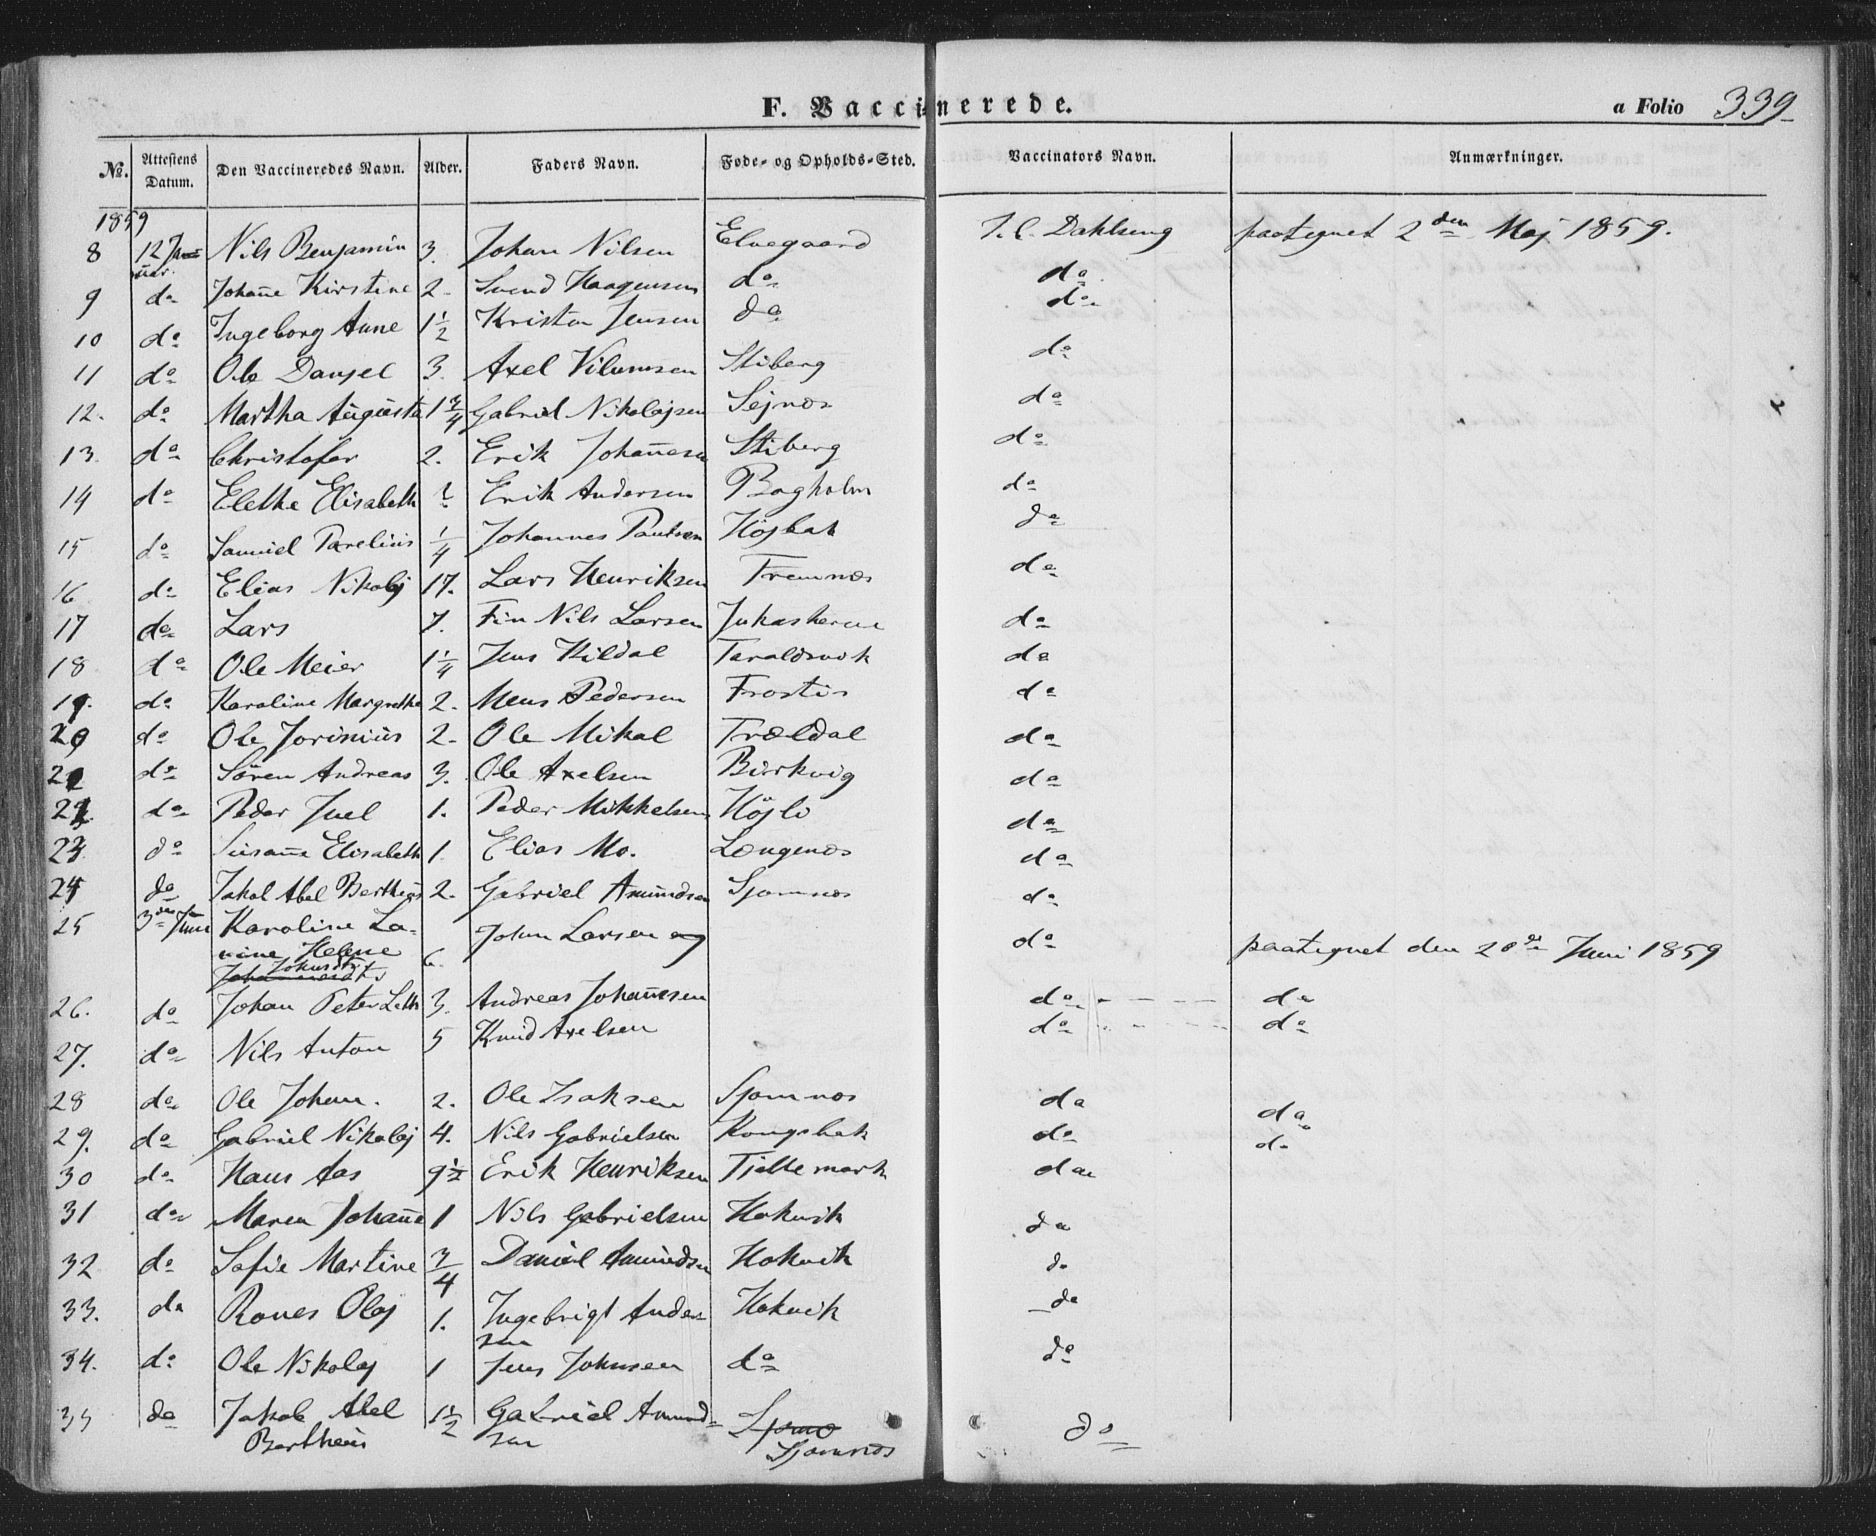 F. Vaccinerede.
a Folio 339
No. Attestens Datum. Den Vaccineredes Navn. Alder. Faders Navn. Føde- og Opholds-Sted. Vaccinators Navn. Anmærkninger.
1859
8 12 Januar. Nils Benjamin 3. Johan Nilsen Elvegaard Dahlseng paategnet 2den Maj 1859.
9 do Johan̄e Kirstine 2. Svend Haagensen do do
10 do Ingeborg Anne 1 1/2 Kristen Jensen do do
11 do Ole Danjel 3. Axel Vilumsen Stiberg do
12. do Martha Augusta 1 3/4 Gabriel Nikolajsen Sejnæs do
13. do Christofer 2. Erik Johan̄esen Stiberg do
14 do Elethe Elisabeth Erik Andersen Bogholm do
15 do Samuel Parelius 1/4 Johannes Paulsen Højbak do
16 do Elias Nikolaj 17. Lars Henriksen Fremnæs do
17 do Lars 7. Fin Nils Larsen do
18. do Ole Meier 1 1/4 Jens Kildal Taraldsvik do
19. do Karoline Margrethe 2. Mons Pedersen Frostis do
20 do Ole Jorinius 2. Ole Mikal Trældal do
21 do Sören Andreas 3. Ole Axelsen Birkvig do
22 do Peder Juel 1. Peder Mikkelsen Højli do
23 do Susan̄e Elisabeth 1. Elias Mo. Længenæs do
24 do Jakob Abel Bertheus 2. Gabriel Amundsen Sjomnæs do
25 3die Juni Karoline La-
nine Helene 6. John Larsen do paategnet den 20de Juni 1859
Johnsdtr
26. do Johan Peter 3. Andreas Johan̄esen do do
27. do Nils Anton 5 Knud Axelsen do do
28 do Ole Johan. 2. Ole Isaksen Sjomnæs do do
29. do Gabriel Nikolaj 4. Nils Gabrielsen Kongsbak do do
30 do Hans Aas 9 1/2 Erik Henriksen Tjellemark do
31 do Maren Johan̄e 1 Nils Gabrielsen Hokvik do
32 do Sofie Martine 3/4 Daniel Amundsen Hokvik do
33. do Rones Olaj 1. Ingebrigt Ander-
sen Hokvik do
34. do Ole Nikolaj 1 Jens Johnsen do do
35 do Jakob Abel 1 1/2 Gabriel Amund-
Bertheus sen Sjomnæs do